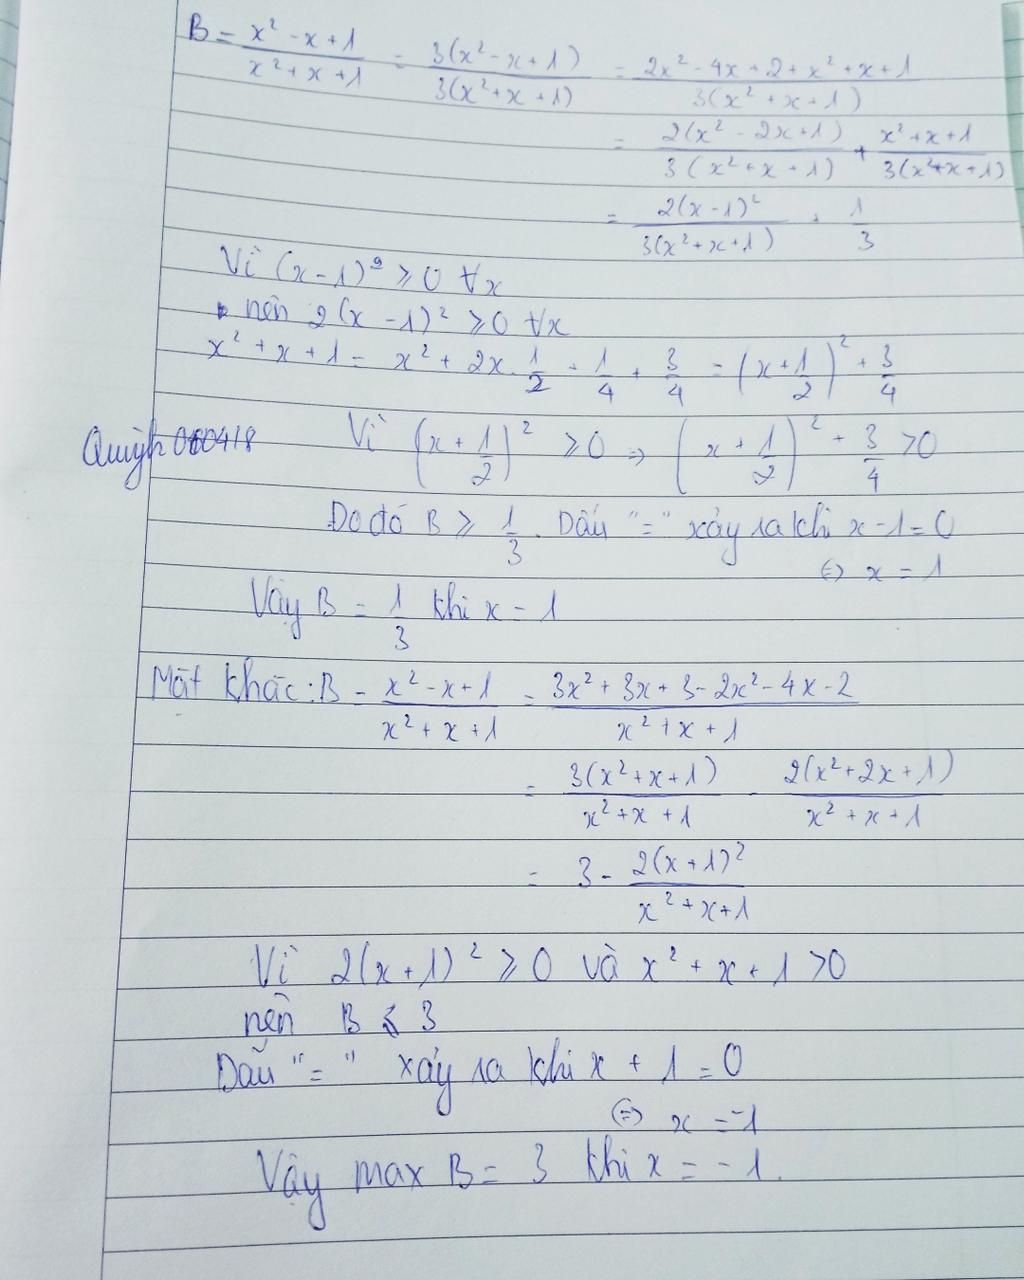 B = (x² - x + 1)/(x² + x + 1) = 3(x² - x + 1)/3(x² + x + 1) = (2x² - 4x + 2 + x² + x + 1)/3(x² + x + 1)
= 2(x² - 2x + 1)/3(x² + x + 1) + (x² + x + 1)/3(x² + x + 1)
= 2(x - 1)²/3(x² + x + 1) + 1/3
Vì (x - 1)² ≥ 0 ∀x
nên 2(x - 1)² ≥ 0 ∀x
x² + x + 1 = x² + 2x.1/2 + 1/4 + 3/4 = (x + 1/2)² + 3/4
Quỳnh 060418
Vì (x + 1/2)² ≥ 0 ⇒ (x + 1/2)² + 3/4 > 0
Do đó B ≥ 1/3. Dấu "=" xảy ra khi x - 1 = 0
⇔ x = 1
Vậy B = 1/3 khi x = 1
Mặt khác: B = (x² - x + 1)/(x² + x + 1) = (3x² + 3x + 3 - 2x² - 4x - 2)/(x² + x + 1)
= 3(x² + x + 1)/(x² + x + 1) - 2(x² + 2x + 1)/(x² + x + 1)
= 3 - 2(x + 1)²/(x² + x + 1)
Vì 2(x + 1)² ≥ 0 và x² + x + 1 > 0
nên B ≤ 3
Dấu "=" xảy ra khi x + 1 = 0
⇔ x = -1
Vậy max B = 3 khi x = -1.